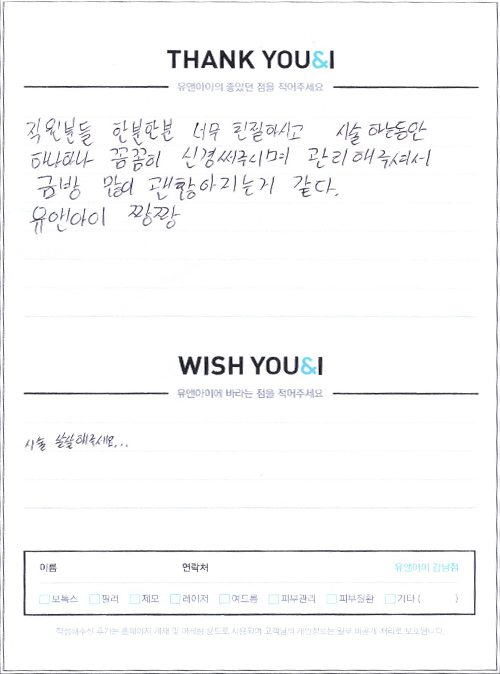 THANK YOU&I
유앤아이의 좋았던 점을 적어주세요
직원분들 한분한분 너무 친절하시고 시술 하는동안
하나하나 꼼꼼히 신경써주시며 관리해주셔서
금방 많이 괜찮아지는거 같다.
유앤아이 짱짱
WISH YOU&I
유앤아이에 바라는 점을 적어주세요
시술 살살해주세요...
이름 연락처 유앤아이 강남점
보톡스 필러 제모 레이저 여드름 피부관리 피부질환 기타 ( )
작성해주신 후기는 홈페이지 게재 및 마케팅 용도로 사용되며 고객님의 개인정보는 필로 비공개 처리로 보호됩니다.